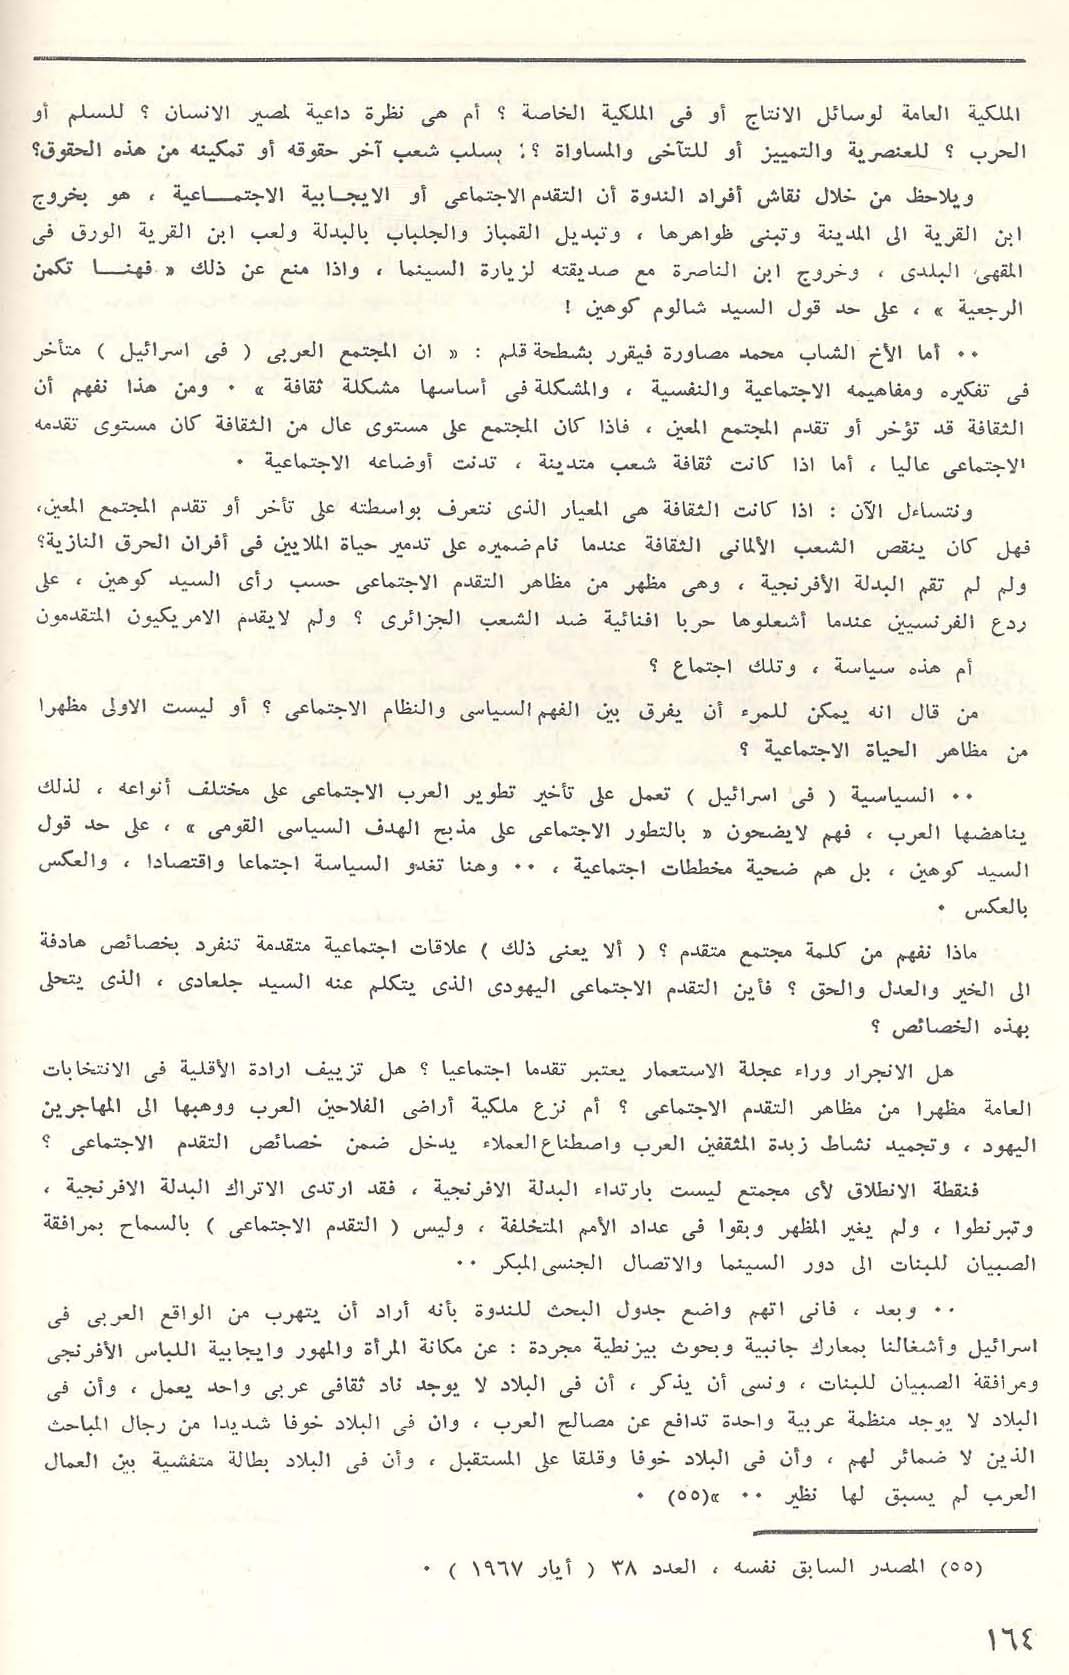 الملكية العامة لوسائل الانتاج أو فى الملكية الخاصة ؟ أم هى نظرة داعية لمصير الانسان ؟ للسلم أو
الحرب ؟ للعنصرية والتمييز أو للتآخى والمساواة ؟! بسلب شعب آخر حقوقه أو تمكينه من هذه الحقوق؟
ويلاحظ من خلال نقاش أفراد الندوة أن التقدم الاجتماعى أو الايجـابية الاجتمـــاعية ، هو بخروج
ابن القرية الى المدينة وتبنى ظواهرها ، وتبديل القمباز والجلباب بالبدلة ولعب ابن القرية الورق فى
المقهى البلدى ، وخروج ابن الناصرة مع صديقته لزيارة السينما ، واذا منع عن ذلك « فهنـــا تكمن
الرجعية » ، على حد قول السيد شالوم كوهين !
٠٠ أما الأخ الشاب محمد مصاورة فيقرر بشطحة قلم : « ان المجتمع العربى ( فى اسرائيل ) متأخر
فى تفكيره ومفاهيمه الاجتماعية والنفسية ، والمشكلة فى أساسها مشكلة ثقافة » ٠ ومن هذا نفهم أن
الثقافة قد تؤخر أو تقدم المجتمع المعين ، فاذا كان المجتمع على مستوى عال من الثقافة كان مستوى تقدمه
الاجتماعى عاليا ، أما اذا كانت ثقافة شعب متدينة ، تدنت أوضاعه الاجتماعية ٠
ونتساءل الآن : اذا كانت الثقافة هى المعيار الذى نتعرف بواسطته على تأخر أو تقدم المجتمع المعين،
فهل كان ينقص الشعب الألمانى الثقافة عندما نام ضميره على تدمير حياة الملايين فى أفران الحرق النازية؟
ولم لم تقم البدلة الأفرنجية ، وهى مظهر من مظاهر التقدم الاجتماعى حسب رأى السيد كوهين ، على
ردع الفرنسيين عندما أشعلوها حربا افنائية ضد الشعب الجزائرى ؟ ولم لايقدم الامريكيون المتقدمون
أم هذه سياسة ، وتلك اجتماع ؟
من قال انه يمكن للمرء أن يفرق بين الفهم السياسى والنظام الاجتماعى ؟ أو ليست الاولى مظهرا
من مظاهر الحياة الاجتماعية ؟
٠٠ السياسية ( فى اسرائيل ) تعمل على تأخير تطوير العرب الاجتماعى على مختلف أنواعه ، لذلك
يناهضها العرب ، فهم لايضحون « بالتطور الاجتماعى على مذبح الهدف السياسى القومى » ، على حد قول
السيد كوهين ، بل هم ضحية مخططات اجتماعية ، ٠٠ وهنا تغدو السياسة اجتماعا واقتصادا ، والعكس
بالعكس ٠
ماذا نفهم من كلمة مجتمع متقدم ؟ ( ألا يعنى ذلك ) علاقات اجتماعية متقدمة تنفرد بخصائص هادفة
الى الخير والعدل والحق ؟ فأين التقدم الاجتماعى اليهودى الذى يتكلم عنه السيد جلعادى ، الذى يتحلى
بهذه الخصائص ؟
هل الانجرار وراء عجلة الاستعمار يعتبر تقدما اجتماعيا ؟ هل تزييف ارادة الأقلية فى الانتخابات
العامة مظهرا من مظاهر التقدم الاجتماعى ؟ أم نزع ملكية أراضى الفلاحين العرب ووهبها الى المهاجرين
اليهود ، وتجميد نشاط زبدة المثقفين العرب واصطناع العملاء يدخل ضمن خصائص التقدم الاجتماعى ؟
فنقطة الانطلاق لأى مجمتع ليست بارتداء البدلة الافرنجية ، فقد ارتدى الاتراك البدلة الافرنجية ،
وتبرنطوا ، ولم يغير المظهر وبقوا فى عداد الأمم المتخلفة ، وليس ( التقدم الاجتماعى ) بالسماح بمرافقة
الصبيان للبنات الى دور السينما والاتصال الجنسى المبكر ٠٠
٠٠ وبعد ، فانى اتهم واضع جدول البحث للندوة بأنه أراد أن يتهرب من الواقع العربى فى
اسرائيل وأشغالنا بمعارك جانبية وبحوث بيزنطية مجردة : عن مكانة المرأة والمهور وايجابية اللباس الأفرنجى
ومرافقة الصبيان للبنات ، ونسى أن يذكر ، أن فى البلاد لا يوجد ناد ثقافى عربى واحد يعمل ، وأن فى
البلاد لا يوجد منظمة عربية واحدة تدافع عن مصالح العرب ، وان فى البلاد خوفا شديدا من رجال المباحث
الذين لا ضمائر لهم ، وأن فى البلاد خوفا وقلقا على المستقبل ، وأن فى البلاد بطالة متفشية بين العمال
العرب لم يسبق لها نظير ٠٠ »(٥٥) ٠
(٥٥) المصدر السابق نفسه ، العدد ٣٨ ( أيار ١٩٦٧ ) ٠
١٦٤